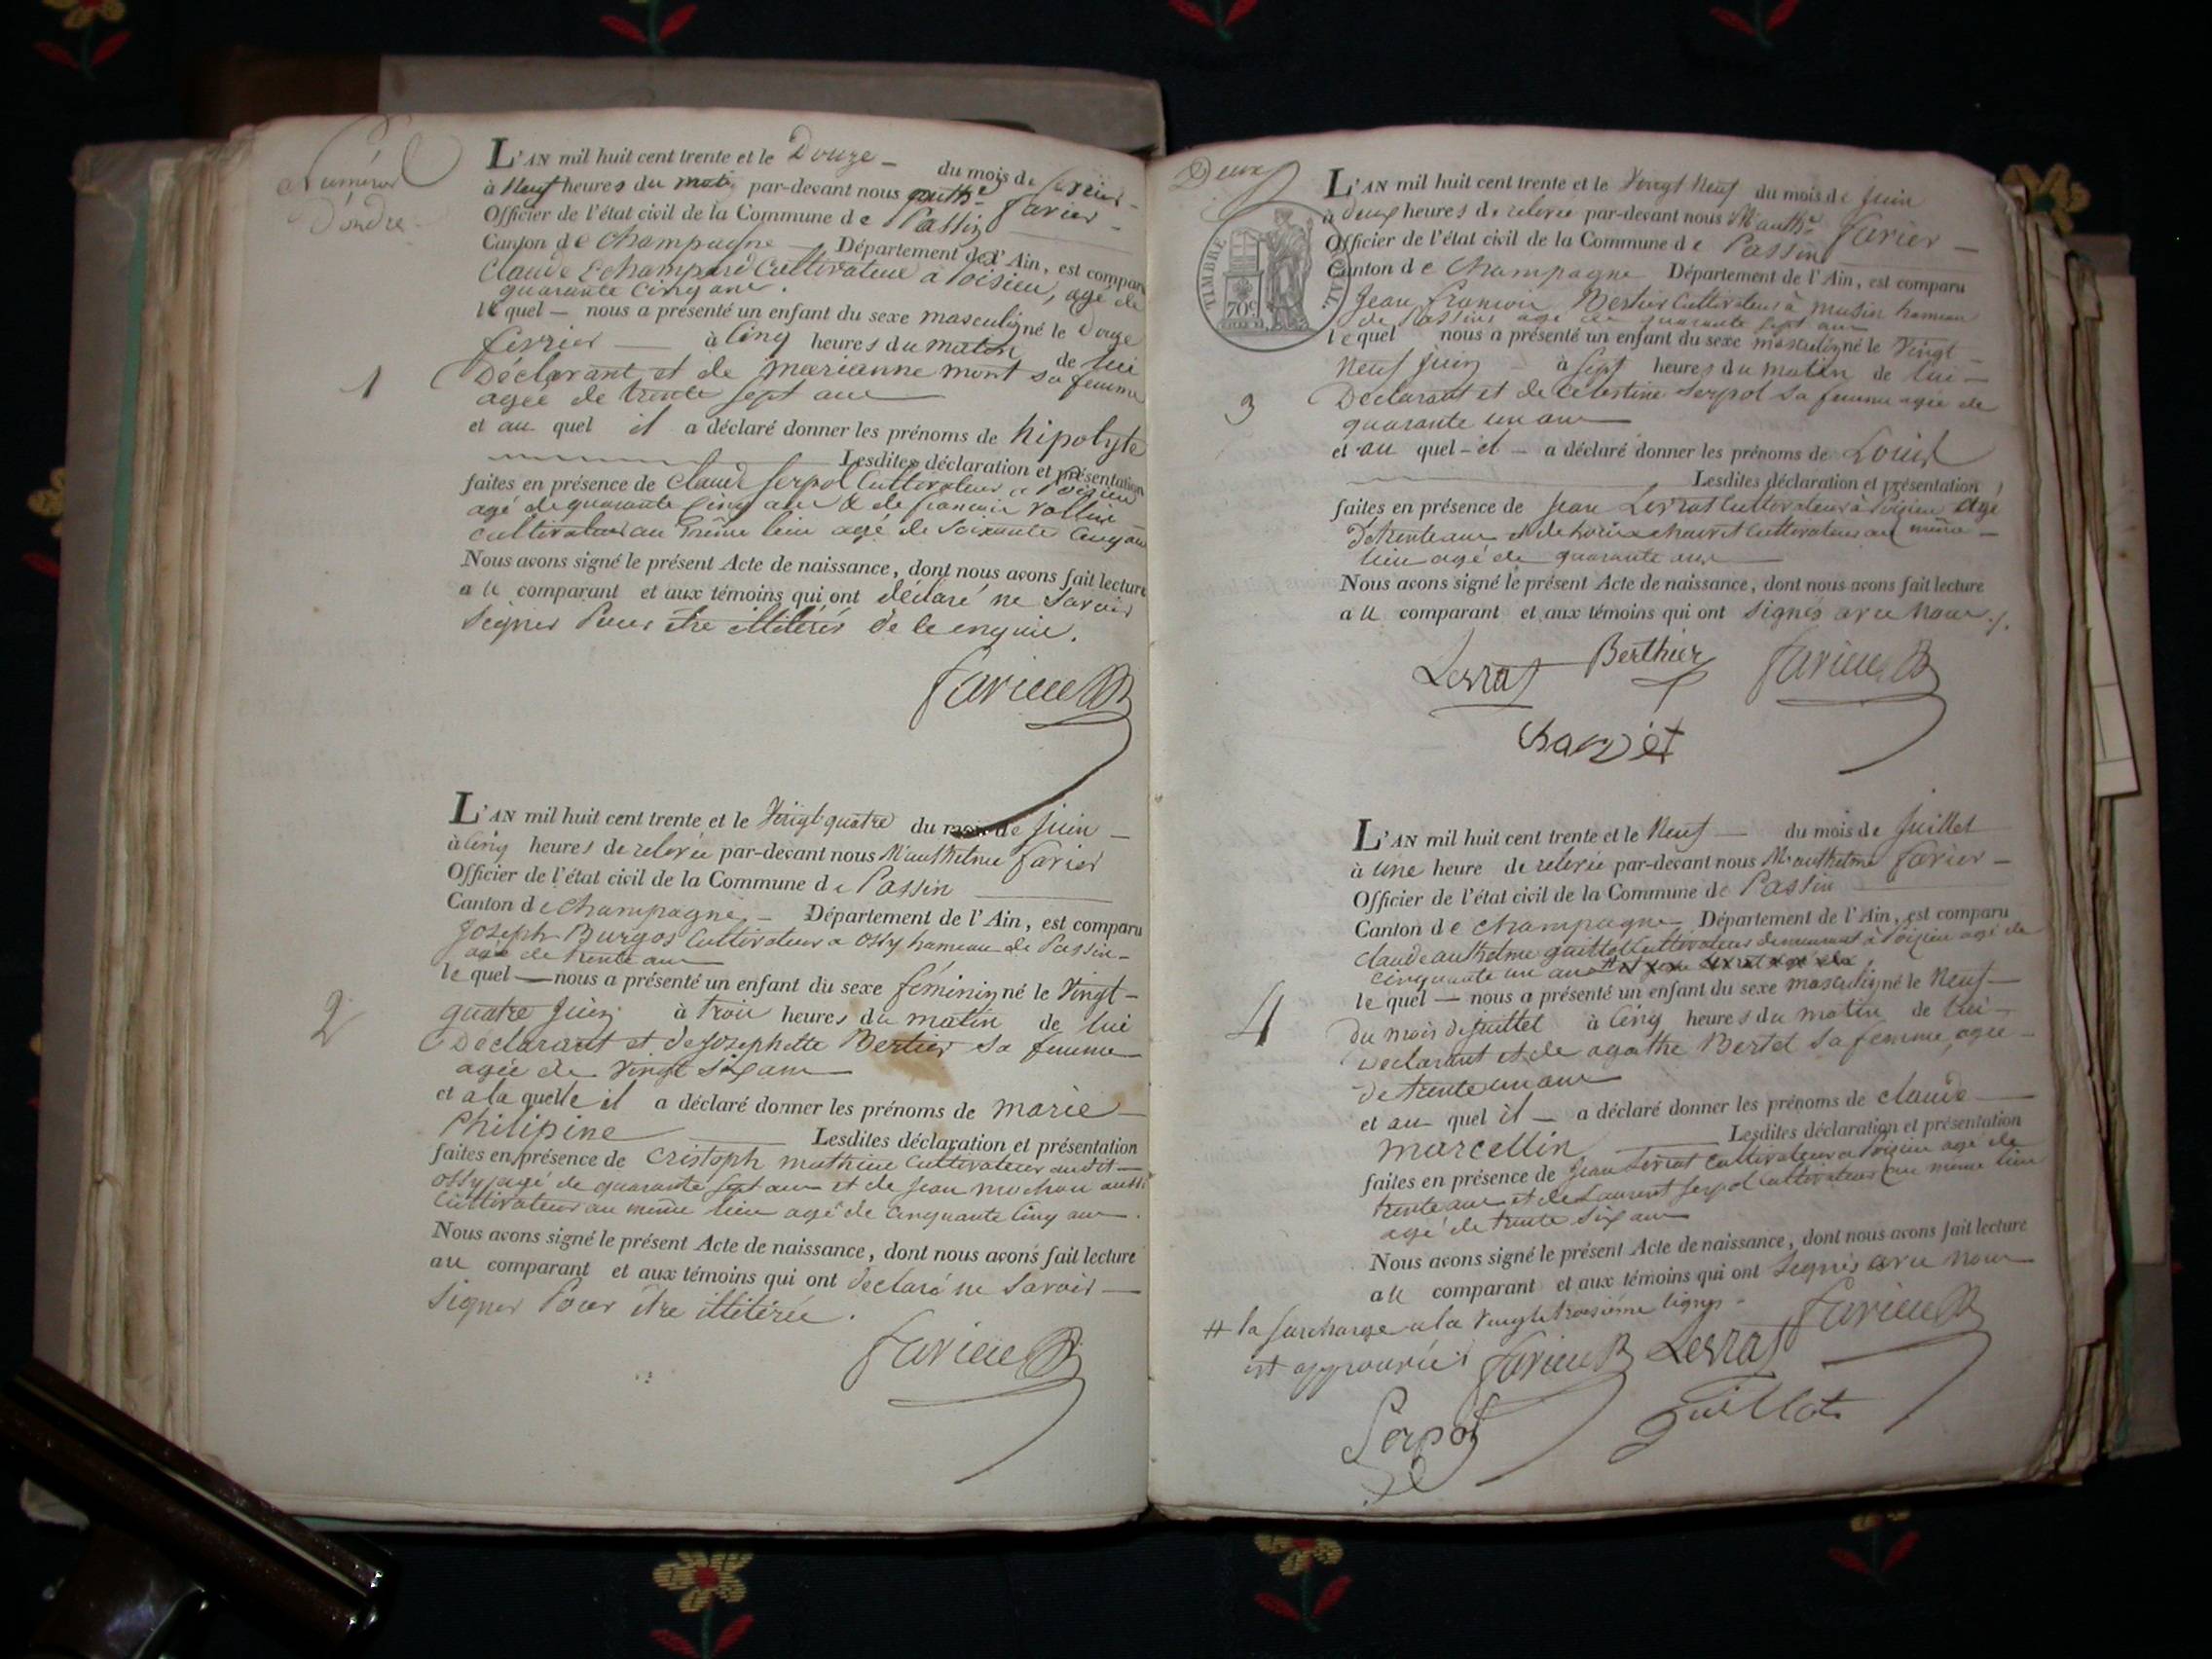 Numéros
D'ordre
L'AN mil huit cent trente et le Douze du mois de fevrier
à Neuf heures du matin par-devant nous anthe. favier
Officier de l'état civil de la Commune de Passin
Canton de Champagne Département de l'Ain, est comparu
Claude Echampard Cultivateur à Poisieu, agé de
quarante cinq ans.
le quel nous a présenté un enfant du sexe masculin né le Douze
fevrier à cinq heures du matin de lui
1
Déclarant et de marianne mont sa femme
agée de trente sept ans
et au quel il a déclaré donner les prénoms de hipolyte
Lesdites déclaration et présentation
faites en présence de Claude Serpol Cultivateur a Poisieu
agé de quarante Cinq ans & de francois vollin
cultivateur au même lieu agé de soixante Cinq ans
Nous avons signé le présent Acte de naissance, dont nous avons fait lecture
au comparant et aux témoins qui ont déclaré ne savoir
signer Pour être illiterés de ce enquis.
favier
L'AN mil huit cent trente et le Vingt quatre du mois de Juin
à cinq heures de relevée par-devant nous M. anthelme favier
Officier de l'état civil de la Commune de Passin
Canton de Champagne, Département de l'Ain, est comparu
Joseph Burgos Cultivateur a Ossy hameau de Passin
agé de trente ans
le quel nous a présenté un enfant du sexe féminin né le Vingt
quatre Juin à trois heures du matin de lui
2
Déclarant et de Josephette Bertier sa femme
agée de Vingt Six ans
et a la quelle il a déclaré donner les prénoms de marie
Philipine Lesdites déclaration et présentation
faites en présence de Cristoph mathieu Cultivateur audit
Ossy agé de quarante Sept ans et de Jean mochon aussi
Cultivateur au même lieu agé de Cinquante Cinq ans.
Nous avons signé le présent Acte de naissance, dont nous avons fait lecture
au comparant et aux témoins qui ont declaré ne Savoir
signer Pour être illitérée.
favier
Deux
TIMBRE ROYAL
70c
L'AN mil huit cent trente et le Vingt Neuf du mois de Juin
à deux heures de relevée par-devant nous M. anthe. favier
Officier de l'état civil de la Commune de Passin
Canton de Champagne Département de l'Ain, est comparu
Jean francois Bertier Cultivateur à musin hameau
de Passin agé de quarante sept ans
le quel nous a présenté un enfant du sexe masculin né le Vingt
Neuf Juin à Sept heures du matin de lui
3
Déclarant et de Celestine Serpol Sa femme agée de
quarante un ans
et au quel il a déclaré donner les prénoms de Louis
Lesdites déclaration et présentation
faites en présence de Jean Levrat Cultivateur à Poisieu Agé
de trente ans et de Louis charvet Cultivateur au même
lieu agé de quarante ans
Nous avons signé le présent Acte de naissance, dont nous avons fait lecture
au comparant et aux témoins qui ont signés avec Nous
Levrat Berthier favier
Charvet
L'AN mil huit cent trente et le Neuf du mois de Juillet
à une heure de relevée par-devant nous M. anthelme favier
Officier de l'état civil de la Commune de Passin
Canton de Champagne Département de l'Ain, est comparu
Claude anthelme guillot Cultivateur demeurant à Poisieu agé de
cinquante un ans #
le quel nous a présenté un enfant du sexe masculin né le Neuf
4
du mois de Juillet à cinq heures du matin de lui
Declarant et de agathe Bertet Sa femme, agée
de trente un ans
et au quel il a déclaré donner les prénoms de claude
marcellin Lesdites déclaration et présentation
faites en présence de Jean Levrat Cultivateur a Poisieu agé de
trente ans et de Laurent Serpol Cultivateur au même lieu
agé de trente Six ans
Nous avons signé le présent Acte de naissance, dont nous avons fait lecture
au comparant et aux témoins qui ont Signés avec Nous
# la surcharge a la Vingt troisième ligne favier
est approuvée favier Levrat
Serpol guillot